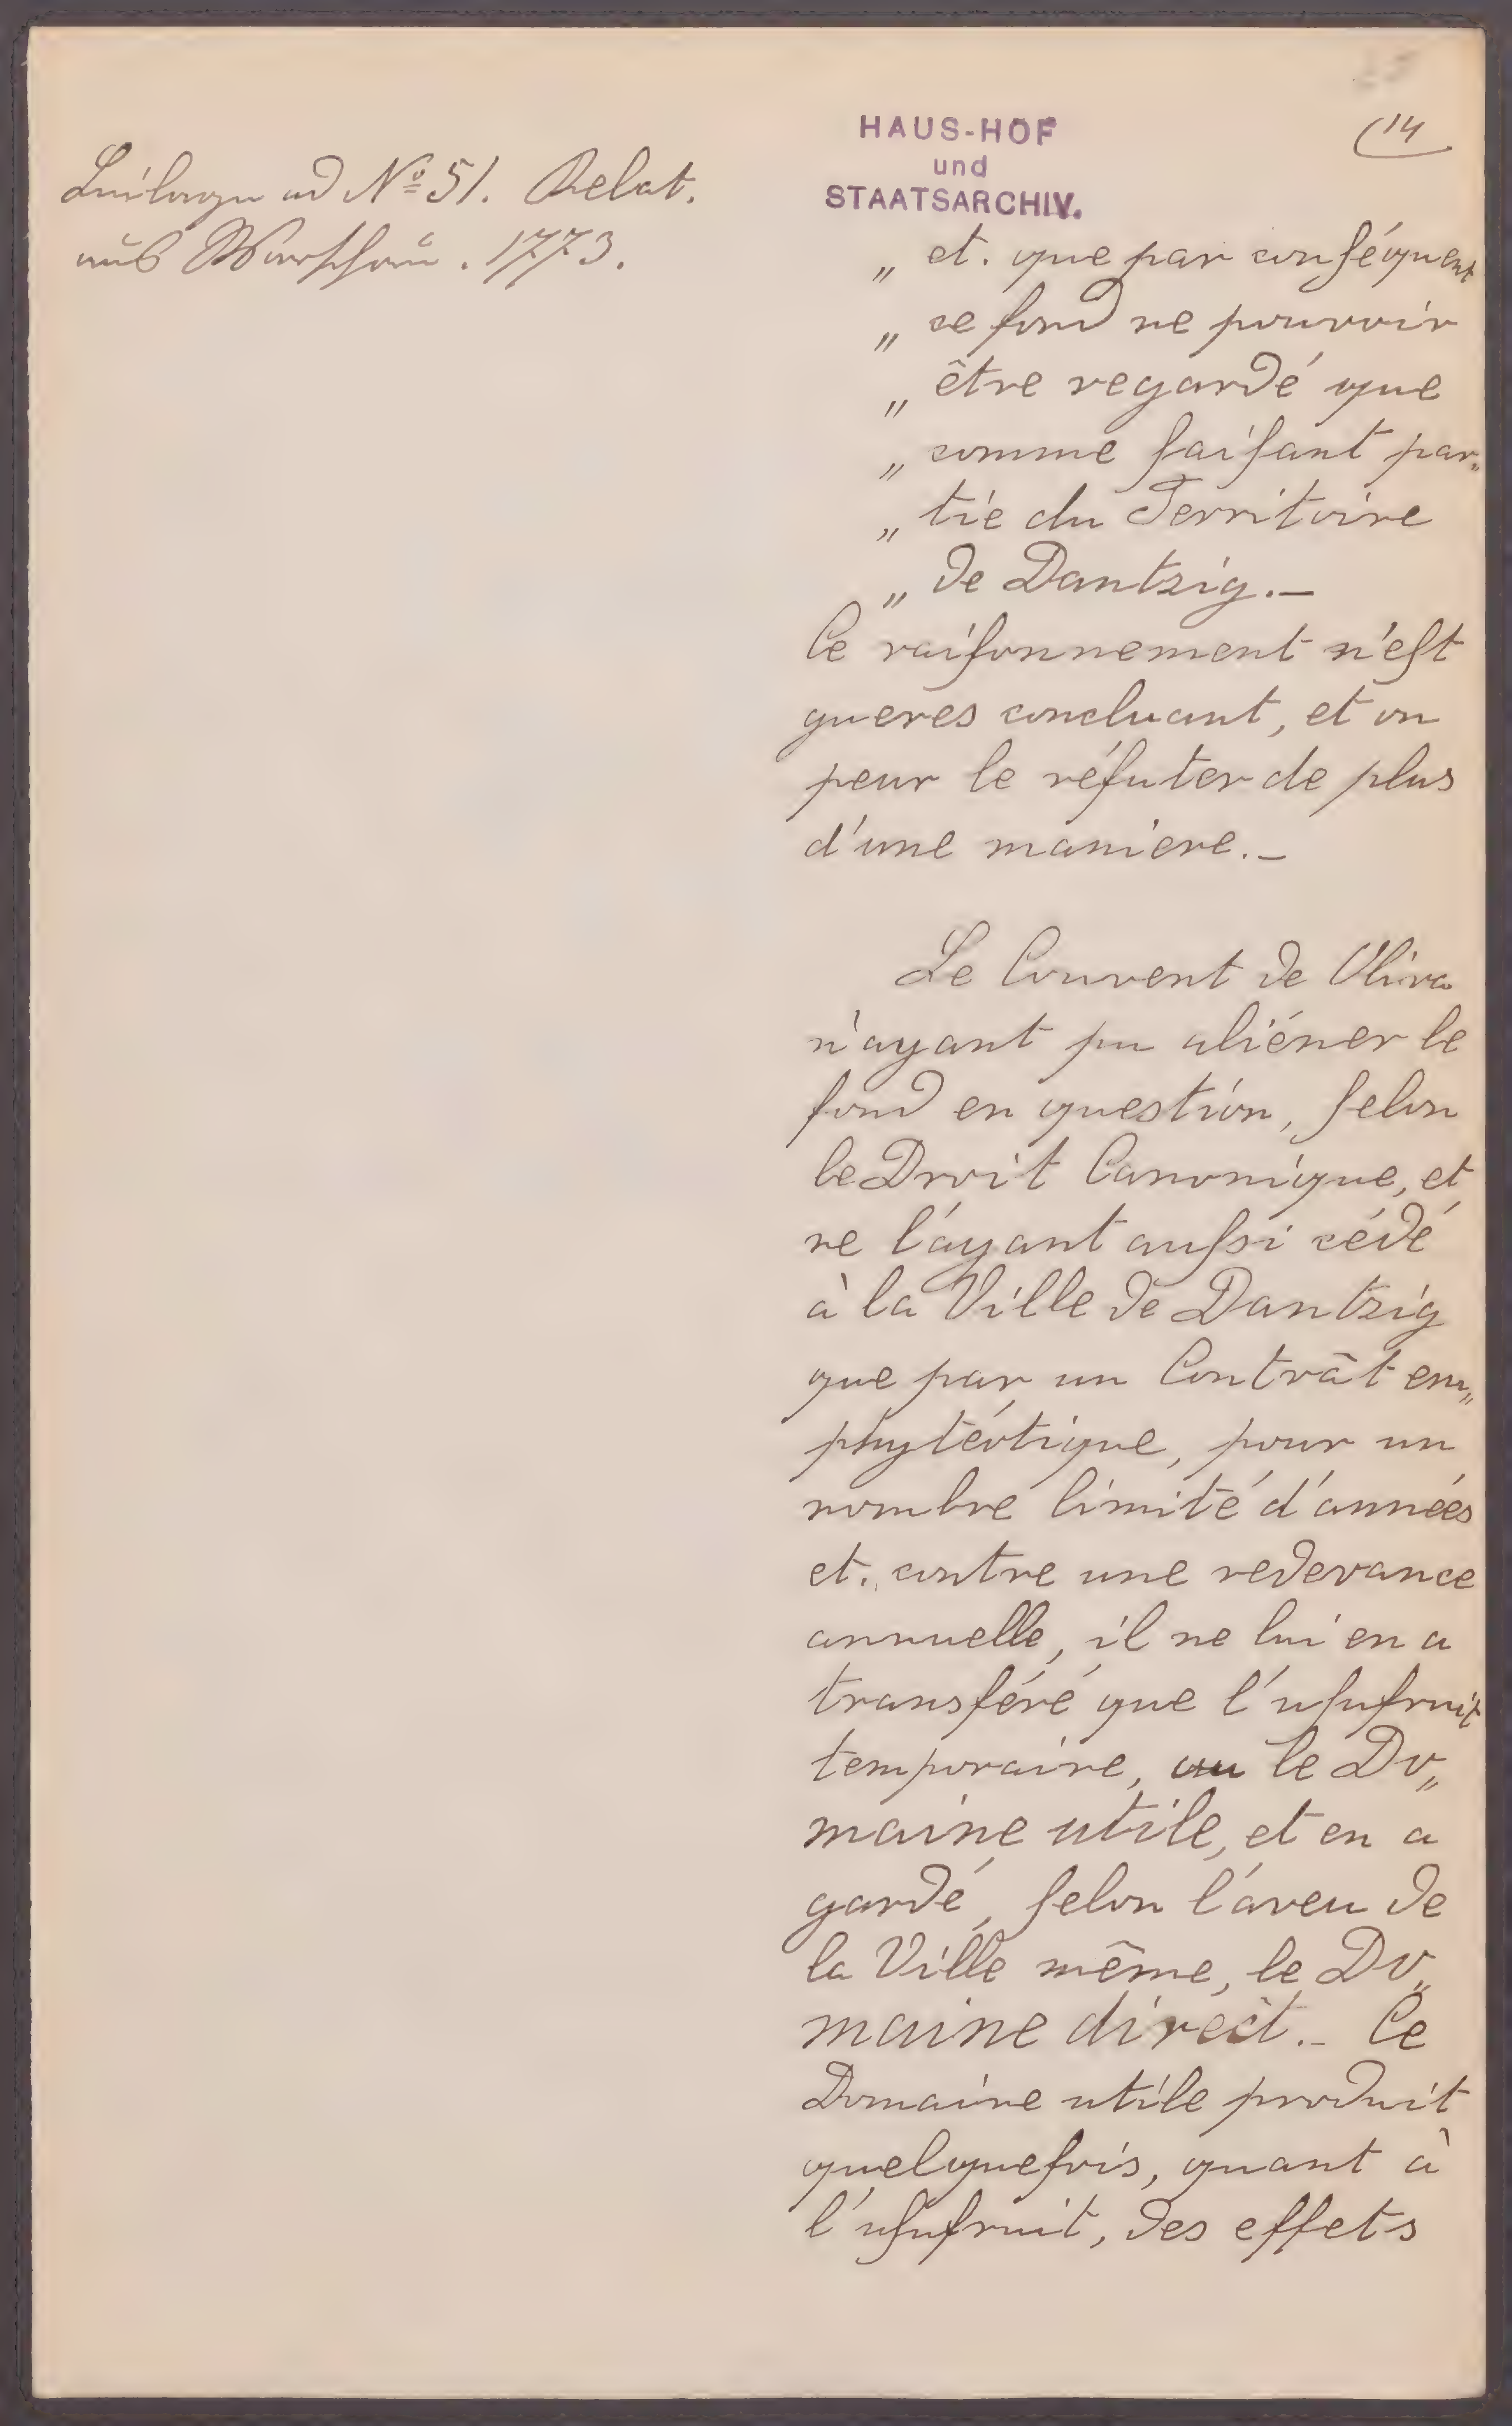 Beilage ad Nº 51. Relat.
aus Warschau. 1773.
HAUS-HOF
und
STAATSARCHIV.
14
„ et. que par conſéquent
„ ce fond ne pouvoir
„ être regardé que
„ comme faiſant par„
„ tie du Territoire
„ de Dantzig.–
Ce raiſonnement n'eſt
gueres concluant, et on
peur le réfuter de plus
d'une maniere.–
Le Couvent de Oliva
n'ayant pu aliéner le
fond en question, ſelon
le Droit Canonique, et
ne l'ayant auſsi cédé
à la Ville de Dantzig
que par un Contrât em„
phytéotique, pour un
nombre limité d'années
et. contre une redevance
annuelle, il ne lui en a
transféré que l'uſufruit
temporaire, ou le Do„
maine utile, et en a
gardé, ſelon l'aveu de
la Ville même, le Do„
maine direct.– Ce
Domaine utile produit
quelquefois, quant à
l'uſufruit, des effets